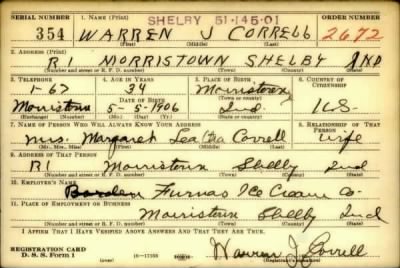 SERIAL NUMBER 1. NAME (Print) SHELBY 51-145-01 ORDER NUMBER
354 WARREN J CORRELL 2672
(First) (Middle) (Last)
2. ADDRESS (Print)
R1 MORRISTOWN SHELBY IND
(Number and street or R. F. D. number) (Town) (County) (State)
3. TELEPHONE 4. AGE IN YEARS 5. PLACE OF BIRTH 6. COUNTRY OF CITIZENSHIP
1-67 34 Morristown
DATE OF BIRTH (Town or county)
Morristown 5-5-1906 Ind U.S.
(Exchange) (Number) (Mo.) (Day) (Yr.) (State or country)
7. NAME OF PERSON WHO WILL ALWAYS KNOW YOUR ADDRESS 8. RELATIONSHIP OF THAT PERSON
Mrs. Margaret Lea Correll wife
(Mr., Mrs., Miss) (First) (Middle) (Last)
9. ADDRESS OF THAT PERSON
R1 Morristown Shelby Ind
(Number and street or R. F. D. number) (Town) (County) (State)
10. EMPLOYER'S NAME
Furnas Ice Cream Co.
11. PLACE OF EMPLOYMENT OR BUSINESS
Morristown Shelby Ind
(Number and street or R. F. D. number) (Town) (County) (State)
I AFFIRM THAT I HAVE VERIFIED ABOVE ANSWERS AND THAT THEY ARE TRUE.
REGISTRATION CARD
D. S. S. Form 1 Warren J Correll
(Registrant's signature)